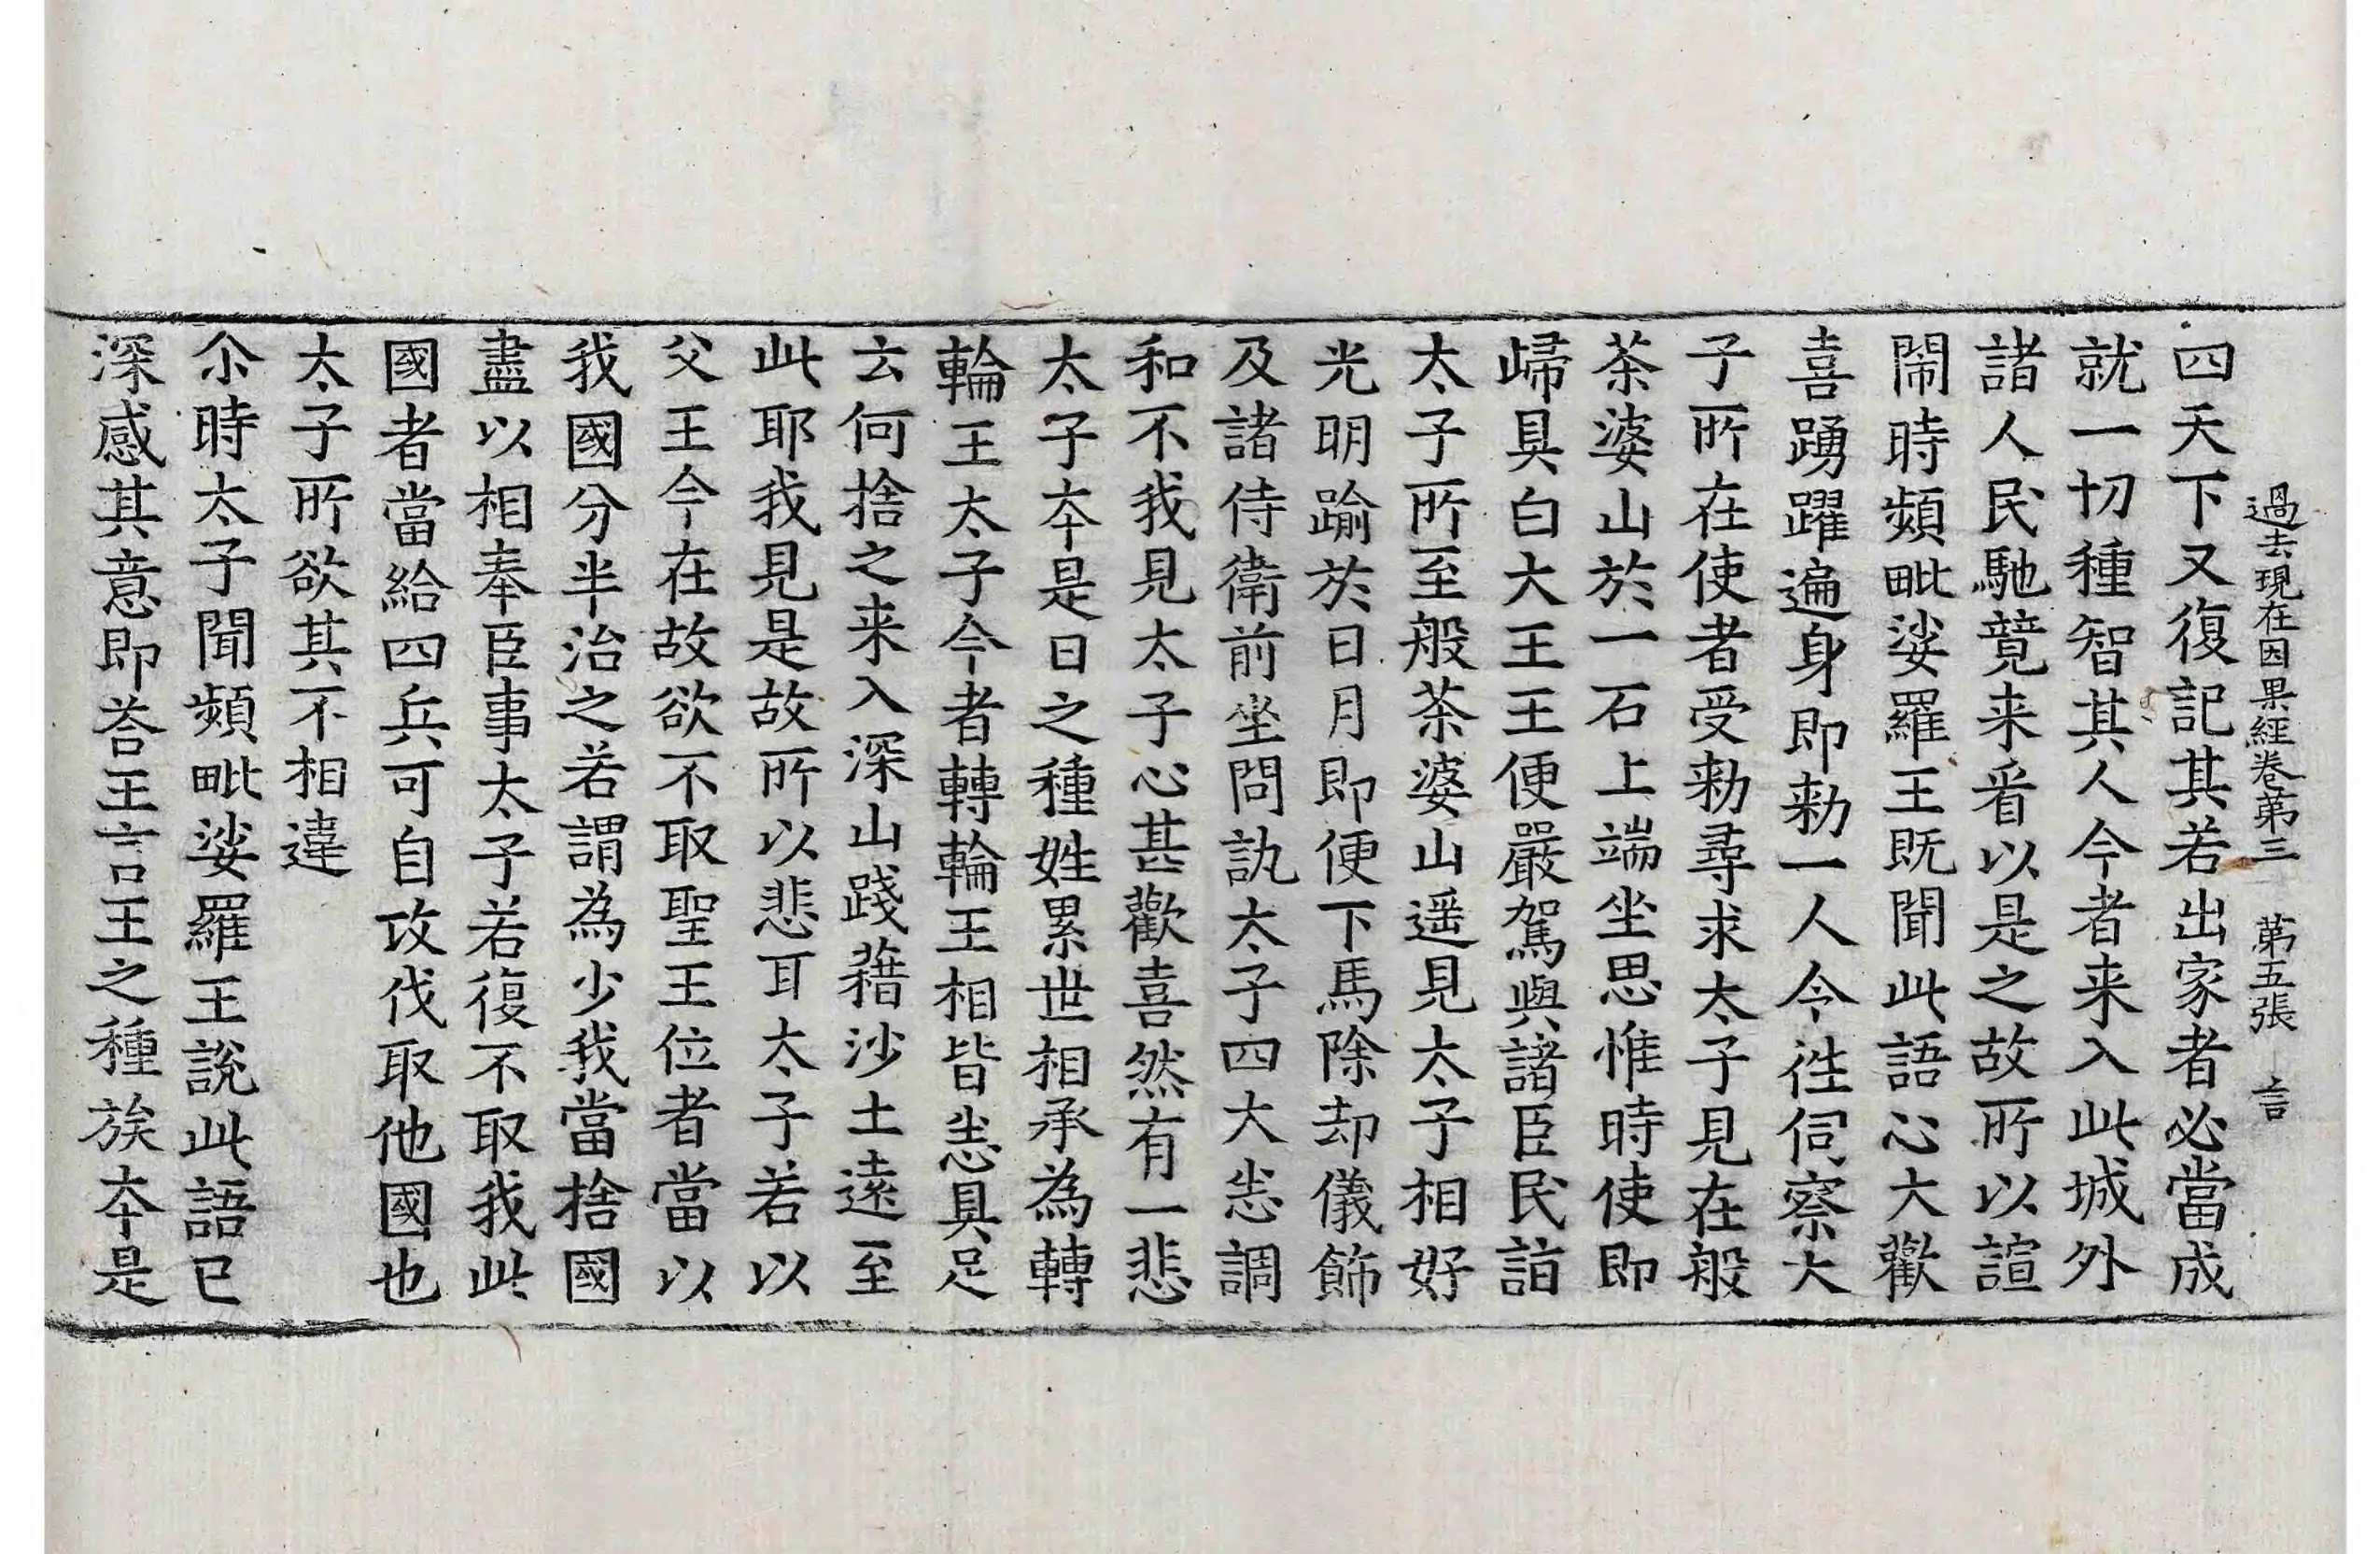 過去現在因果經卷第三 第五張 言
四天下又復記其若出家者必當成
就一切種智其人今者来入此城外
諸人民馳競来看以是之故所以諠
閙時頻毗娑羅王既聞此語心大歡
喜踴躍遍身即勑一人令徃伺察太
子所在使者受勑尋求太子見在般
茶婆山於一石上端坐思惟時使即
歸具白大王王便嚴駕與諸臣民詣
太子所至般茶婆山遥見太子相好
光明踰於日月即便下馬除却儀飾
及諸侍衛前坐問訊太子四大悉調
和不我見太子心甚歡喜然有一悲
太子夲是日之種姓累世相承為轉
輪王太子今者轉輪王相皆悉具足
云何捨之来入深山踐藉沙土遠至
此耶我見是故所以悲耳太子若以
父王今在故欲不取聖王位者當以
我國分半治之若謂為少我當捨國
盡以相奉臣事太子若復不取我此
國者當給四兵可自攻伐取他國也
太子所欲其不相違
尒時太子聞頻毗娑羅王說此語已
深感其意即荅王言王之種族夲是